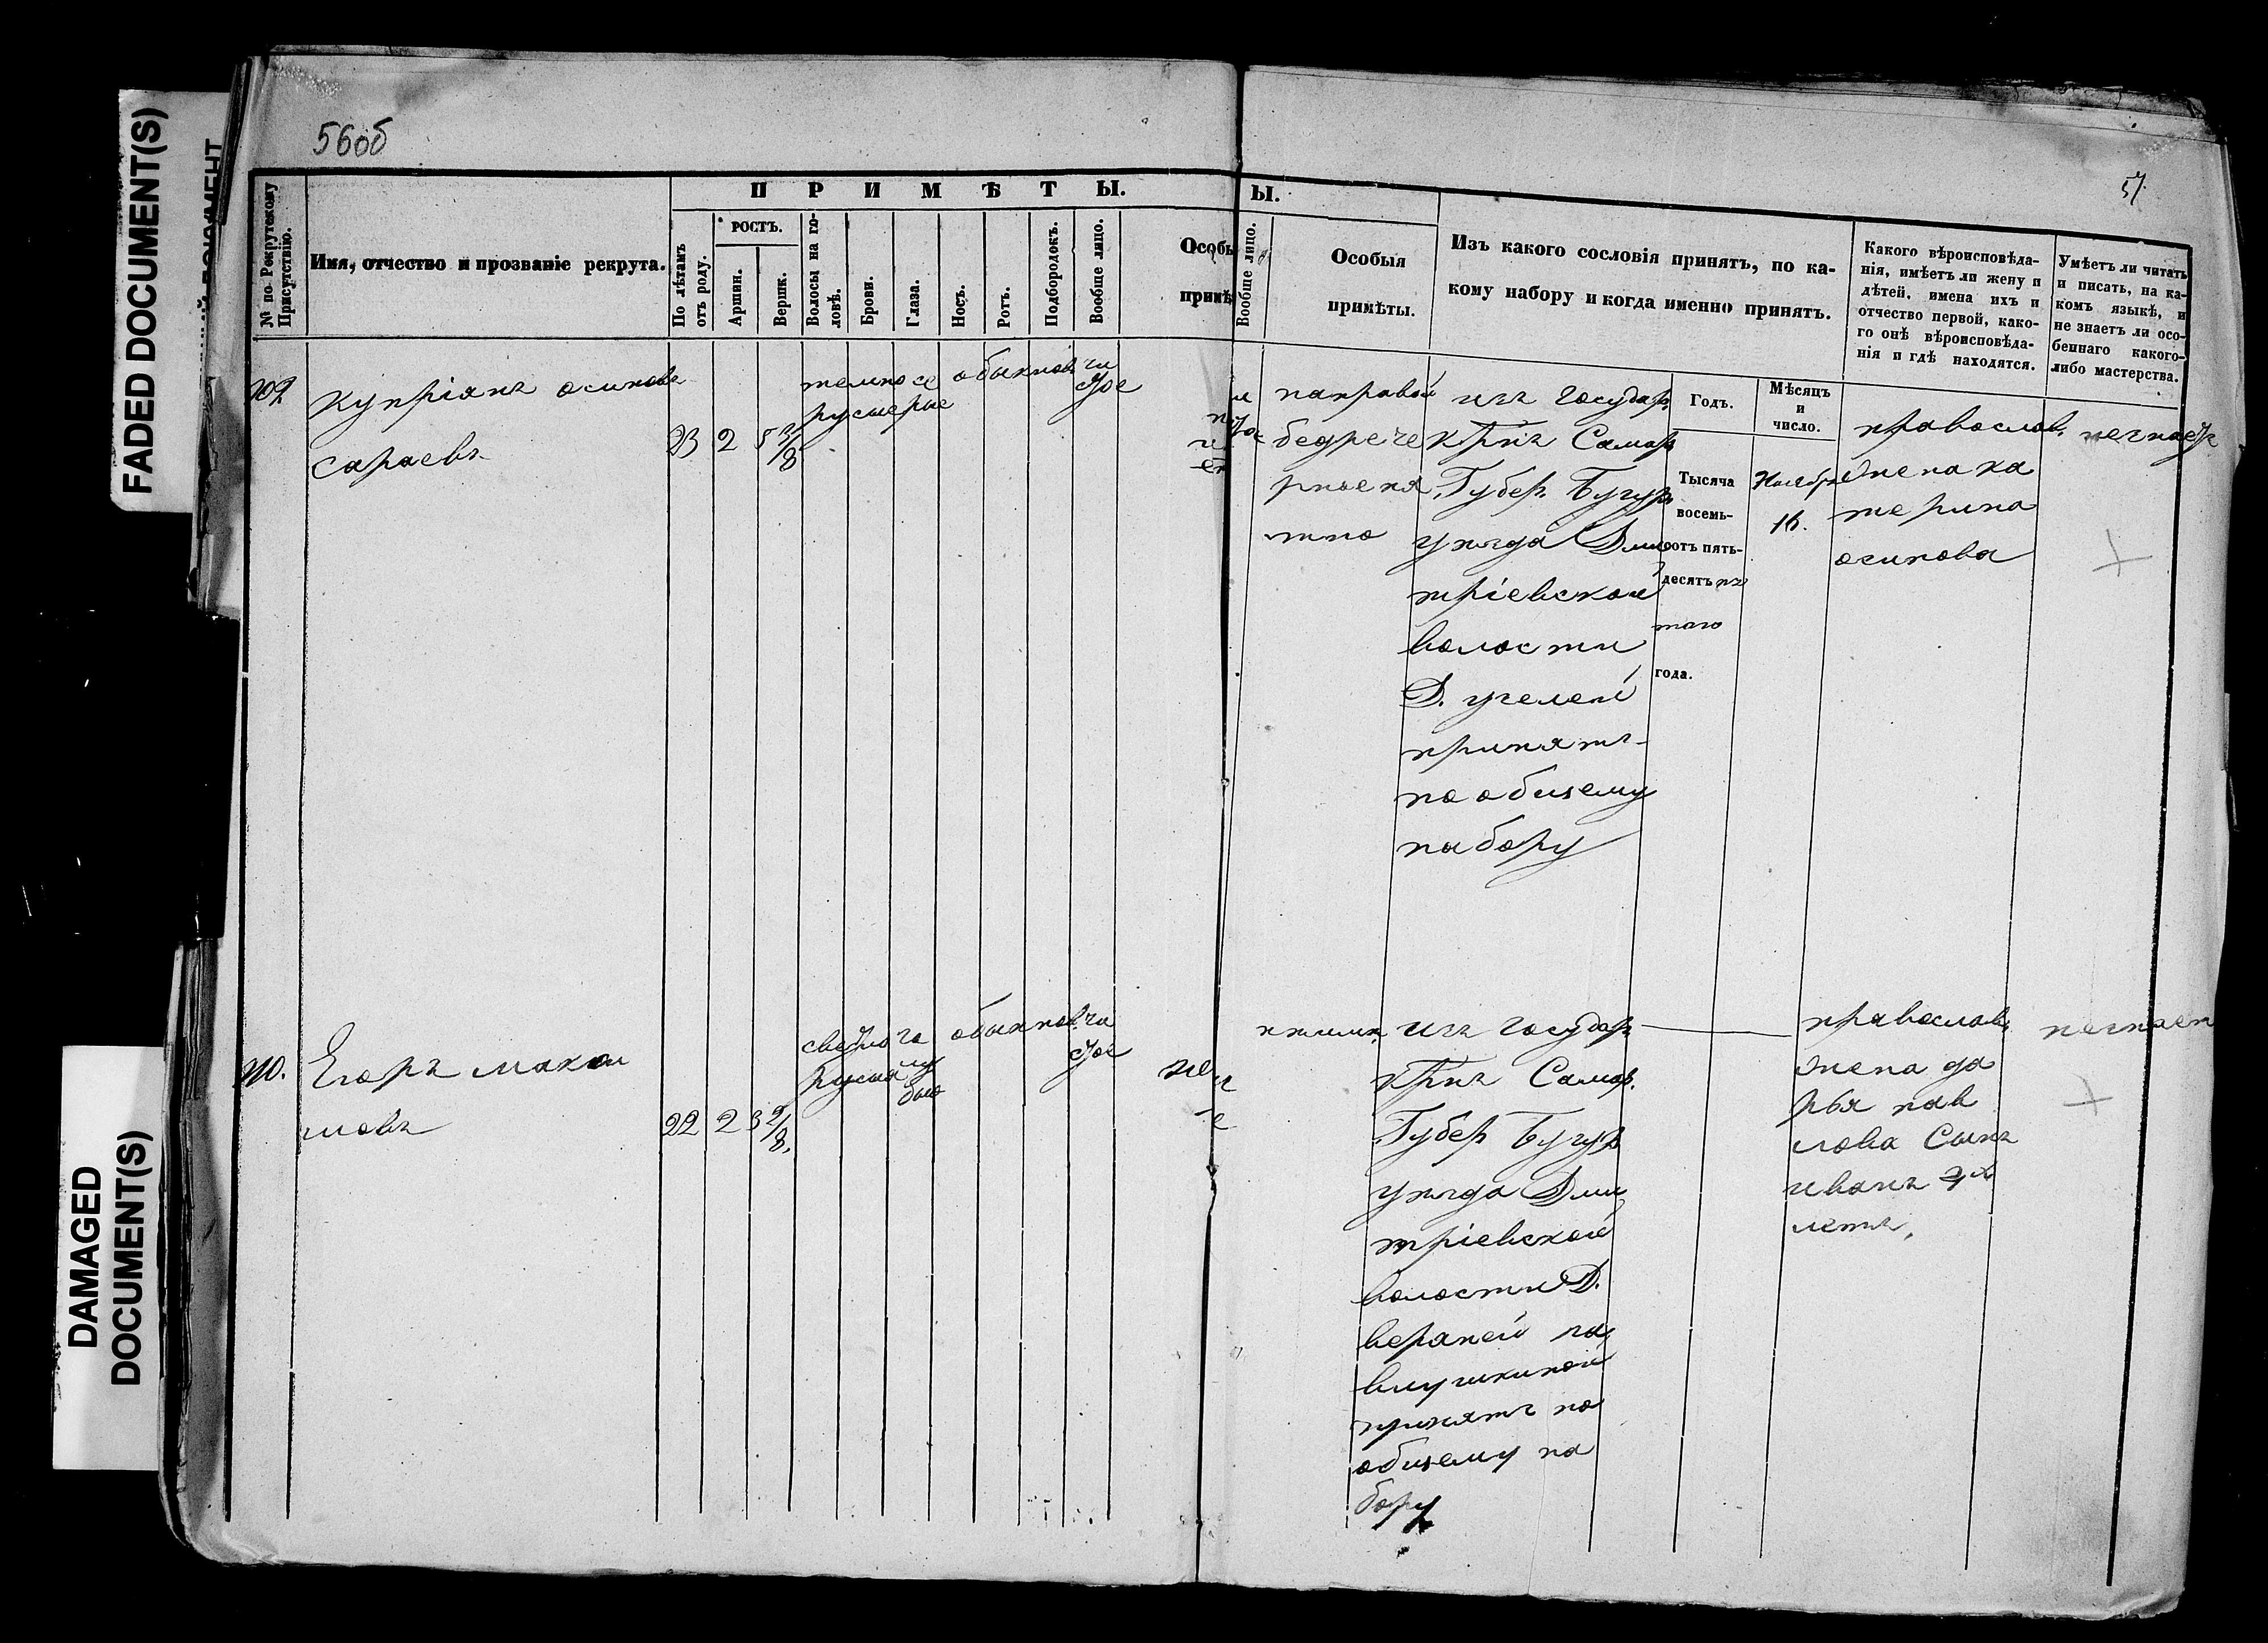 FADED DOCUMENT(S)
DAMAGED
DOCUMENT(S)
56об
57.
ПРИМѢТЫ.
Ы.
№ по Рекрутскому
Присутствію.
Имя, отчество и прозваніе рекрута.
По лѣтамъ
отъ роду.
РОСТЪ.
Аршин.
Вершк.
Волосы на го-
ловѣ.
Брови.
Глаза.
Носъ.
Ротъ.
Подбородокъ.
Вообще лицо.
Особы
примѣ
Вообще лицо.
Особыя
примѣты.
Изъ какого сословія принятъ, по ка-
кому набору и когда именно принятъ.
Какого вѣроисповѣда-
нія, имѣетъ ли жену и
дѣтей, имена ихъ и
отчество первой, како-
го онѣ вѣроисповѣда-
нія и гдѣ находятся.
Умѣетъ ли читать
и писать, на ка-
комъ языкѣ, и
не знаетъ ли осо-
беннаго какого-
либо мастерства.
109
Купріянъ осиповъ
сараевъ
23 2 5 3/8
темно
русые
се
рые
обыкнов.
чи
стое
направой
бедре че
рное пя
тно
изъ государ.
кр̃нъ Самар
Губер. Бугур.
уезда Дми
тріевской
волости
Д. учелей
принятъ
по общему
набору
Годъ.
Тысяча
восемь-
сотъ пять-
десятъ пя
таго
года.
Мѣсяцъ
и
число.
Ноября
16.
православ.
жена ка
терина
осипова
незнает
110.
Егоръ макси
мовъ
22 2 3 2/8.
светло
русыя
го
лу
бые
обыкнов.
чи
стое
изъ государ
кр̃нъ Самар.
Губер Бугур
уезда Дми
тріевской
волости Д.
верхней па
влушкиной
принятъ по
общему на
бору
православ.
жена да
рья пав
лова Сынъ
иванъ 2х
летъ,
незнает